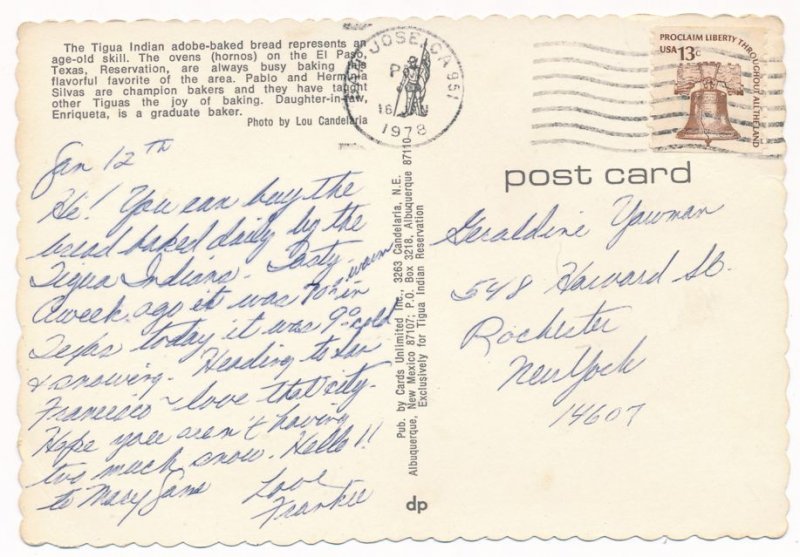 The Tigua Indian adobe-baked bread represents an
age-old skill. The ovens (hornos) on the El Paso,
Texas, Reservation, are always busy baking this
flavorful favorite of the area. Pablo and Herminia
Silvas are champion bakers and they have taught
other Tiguas the joy of baking. Daughter-in-law,
Enriqueta, is a graduate baker.
Photo by Lou Candelaria
SAN JOSE, CA 951
16 JAN
1978
PROCLAIM LIBERTY THROUGHOUT ALL THE LAND
USA 13c
post card
Jan 12th
Hi! You can buy the
bread baked daily by the
Tigua Indians. Tasty.
A week ago it was 70° warm in
Texas today it was 9° cold
& snowing. Heading to San
Francisco - love that city.
Hope you aren't having
too much snow. Hello!!
to Mary Jane
Love
Frankie
Pub. by Cards Unlimited Inc., 3263 Candelaria, N.E.
Albuquerque, New Mexico 87107; P.O. Box 3218, Albuquerque 87110
Exclusively for Tigua Indian Reservation
Geraldine Yawman
548 Harvard St.
Rochester
New York
14607
dp